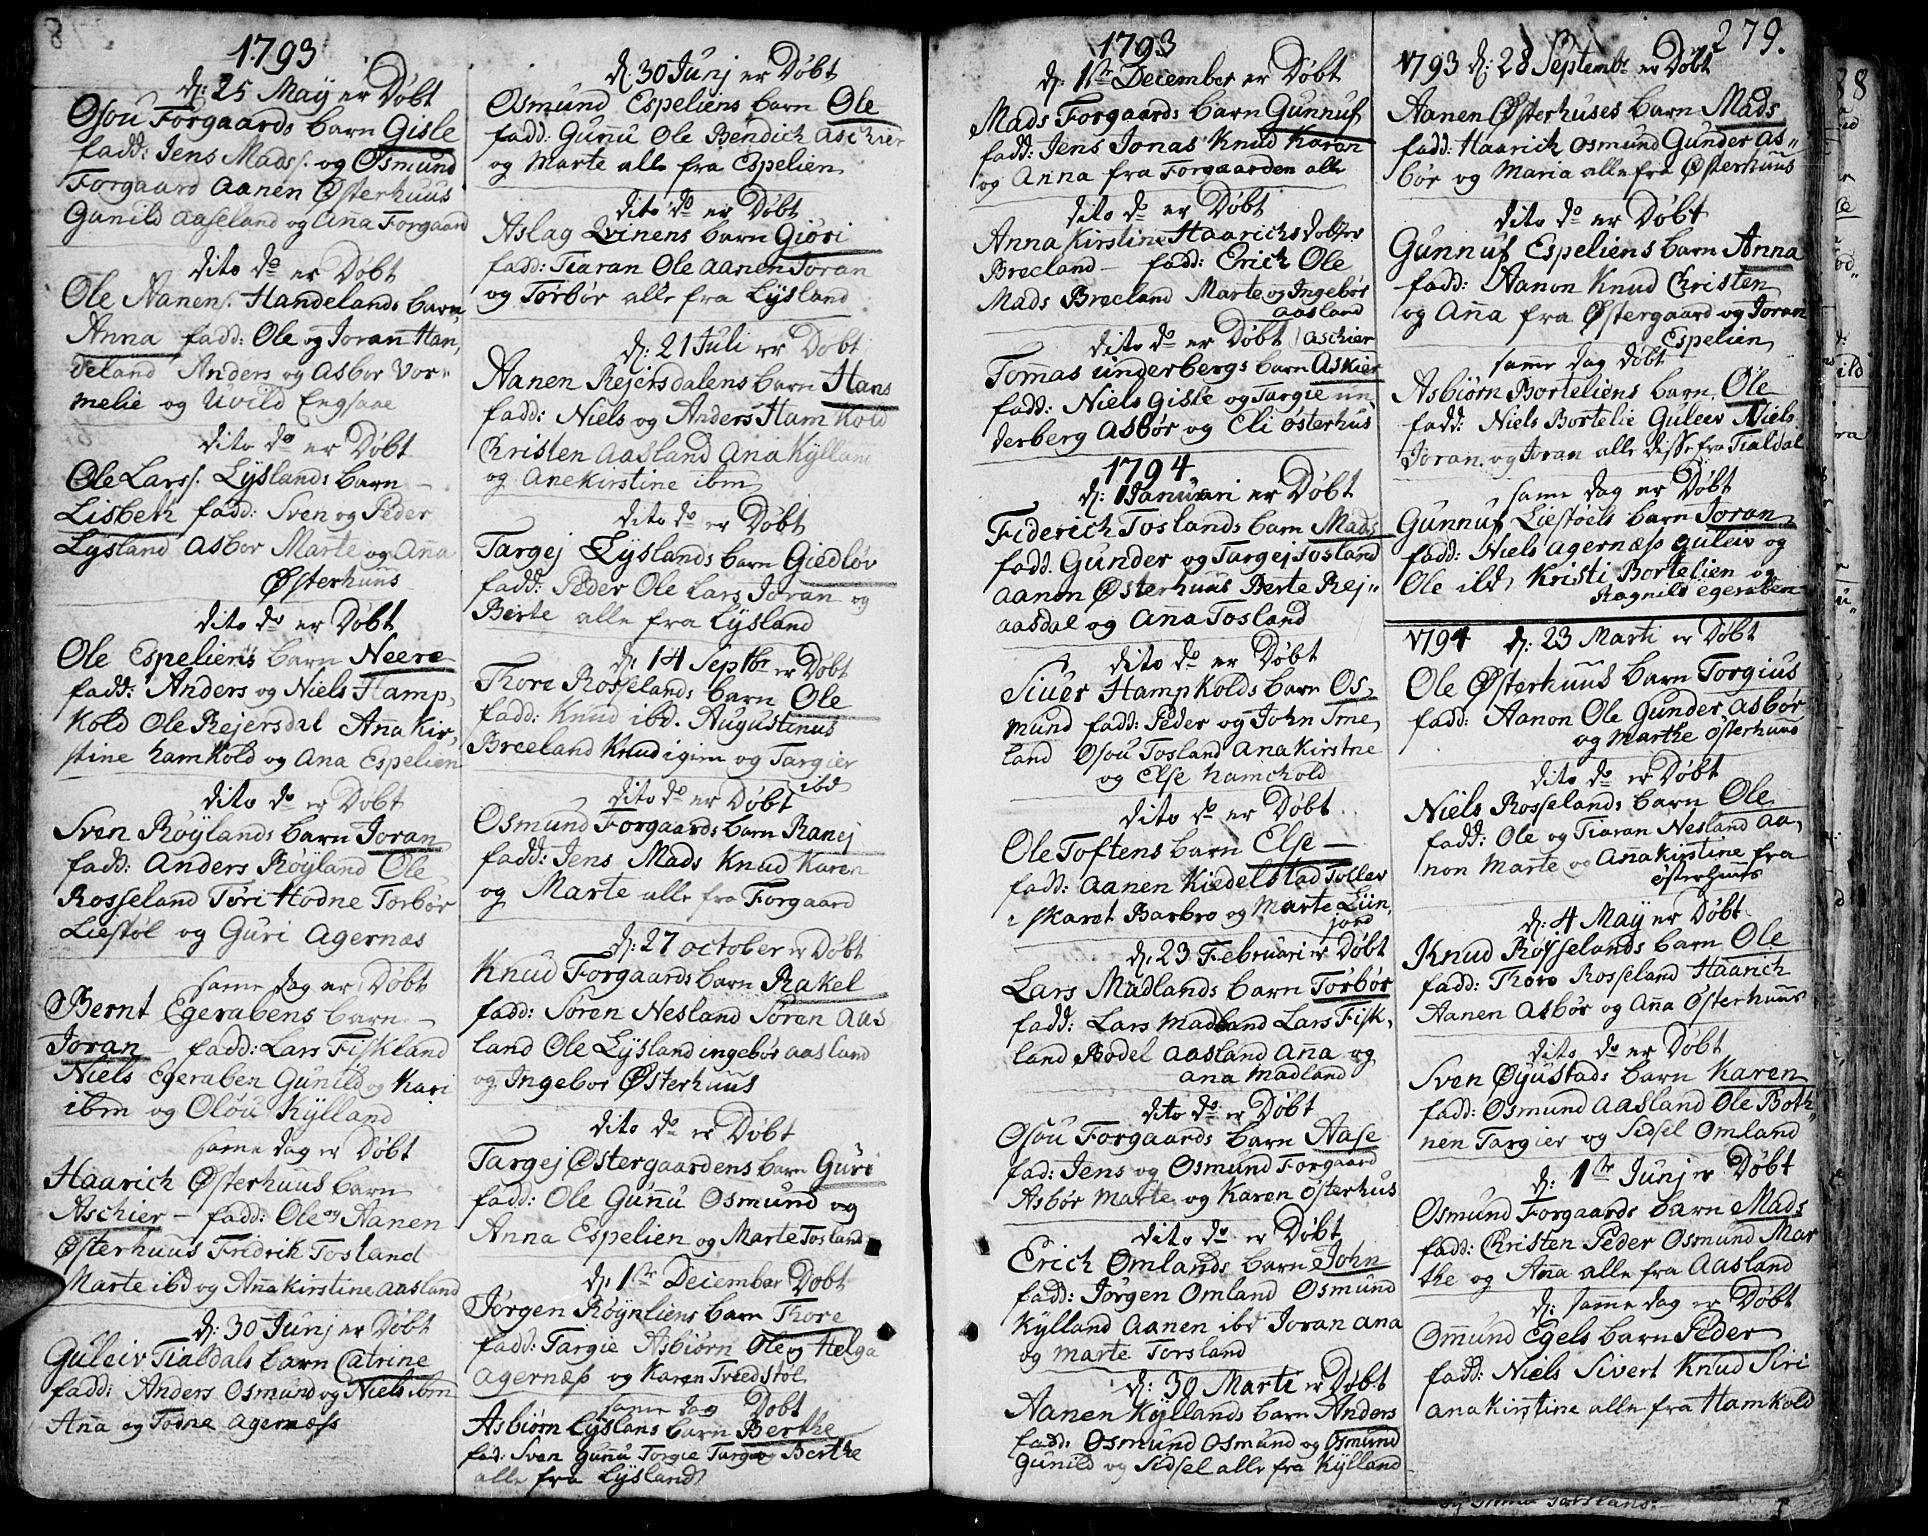 1793
d: 25 Maÿ er Døbt
Osou Forgaards barn Gisle
fadd: Jens Mads. og Osmund
Forgaard Aanen Østerhuus
Gunild Aaseland og Aña Forgaard
dito do er Døbt
Ole Aanens. Handelands barn
Anna fadd: Ole og Joran Han,
deland Anders og Asbor Vor=
melie og Uvild Engsaae
dito do er Døbt
Ole Larss. Lÿslands barn
Lisbeth fadd: Sven og Peder
Lÿsland Asbor Marte og Aña
Østerhuus
dito do er Døbt
Ole Espeliens barn Neere
fadd: Anders og Niels Hamp,
kold Ole Rejersdal Aña Kir,
stine hamkold og Ana Espelien
dito do er Døbt
Sven Røÿlands barn Joran
fadd: Anders Røÿland Ole
Rosseland Tøri Hodne Torbør
Liestøl og Guri Agernæs
same dag er Døbt
Bernt Egerabens barn
Joran fadd: Lars Fiskland
Niels Egeraben Gunild og Kari
ibm og Oløu Kÿlland
same dag er Døbt
Haarich Østerhuus barn
Aschier fadd: Ole og Aanen
Østerhuus Fridrik Tosland
Marte ibd og Aña kirstine Aasland
d: 30 Junj er Døbt
Guleiv Tialdals barn Catrine
fadd: Anders Osmund og Niels ibm
Aña og Todne Agernæss
d: 30 Junj er Døbt
Osmund Espeliens barn Ole
fadd: Gunu Ole Bendich Aschier
og Marte alle fra Espelien
dito do er Døbt
Aslag Qvinens barn Giøri
fadd: Tiaran Ole Aanen Joran
og Torbør alle fra Lÿsland
d: 21 Juli er Døbt
Aanen Rejersdalens barn Hans
fadd: Niels og Anders Ham kold
Christen Aasland Ana Kÿlland
og Anekirstine ibm
dito do er Døbt
Targej Lÿslands barn Giedløv
fadd: Peder Ole Lars Joran og
Berte alle fra Lÿsland
d: 14 Septbr er Døbt
Thore Rosselands barn Ole
fadd: Knud ibd. Augustinus
Breeland Knud igim og Targier
ibd
dito do er Døbt
Osmund Forgaards barn Ranej
fadd: Jens Mads Knud Karen
og Marte alle fra Forgaard
d: 27 october er Døbt
Knud Forgaards barn Rakel
fadd: Søren Nesland Søren Aas
land Ole Lÿsland ingebør Aasland
og Ingebor Østerhuus
dito do er Døbt
Targej Østergaardens barn Guri
fadd: Ole Gunu Osmund og
Anna Espelien og Marte Tosland
d: 1te December Døbt
Jørgen Røÿnliens barn Thore
fadd: Targie Asbiørn Ole og Helga
Agernæss og Karen Tvedstøl
same dag Døbt
Asbiørn Lÿslans barn Berthe
fad: Sven Gunu Torgie Targ og Berthe
alle fra Lÿsland
1793
d: 1te December er Døbt
Mads Forgaards barn Gunnuf
fadd: Jens Jonas Knud Karen
og Anna fra Forgaarden alle
dito do er Døbt
Anna Kirstine Haarichs dotter
Breeland – fadd: Erich Ole
Mads Breeland Marte og Ingebør
Aasland
dito do er Døbt Aschier
Tomas underbergs barn Askier
fadd: Niels Gisle og Targie un,
derberg Asbør og Eli østerhus
1794
d: 1 Januari er Døbt
Fiderich Toslands barn Mads
fadd. Gunder og Targej Tosland
Aanon Østerhuus Berte Rej=
aasdal og Aña Tosland
dito do er Døbt
Siuer Hampkolds barn Os,
mund fadd: Peder og John Tme,
land Osou Tosland Anakirstne
og Else hamchold
dito do er Døbt
Ole Toftens barn Else
fadd: Aanen Kiedelstad Tollev
i skaret Barbro og Marte Liin,
jord
d: 23 Februari er Døbt
Lars Madlands barn Torbør
fadd: Lars Madland Lars Fisk,
land Bodel Aasland Aña og
Ana Madland
dito do er Døbt
Osou Forgaards barn Aase
fad: Jens og Osmund Forgaard
Asbør Marte og Karen østerhus
dito do er Døbt
Erich Omlands barn John
fadd: Jørgen Omland Osmund
Kÿlland Aanen ibd Joran Ana
og Marte Torsland
d: 30 Marti er Døbt
Aanen Kÿllands barn Anders
fadd: Osmund Osmund og Osmund
Gunild og Sidsel alle fra Kÿlland
279.
1793 d: 28 Septembr er Døbt
Aanen Østerhuses barn Mads
fadd: Haarich Osmund Gunder As=
bør og Maria alle fra Østerhuus
dito do er Døbt
Gunnuf Espeliens barn Anna
fadd: Aanon Knud Christen
og Aña fra Østergaard og Joran
Espelien
same dag døbt
Asbiørn Borteliens barn Ole
fadd: Niels Bortelie Guleiv Niels
Joran og Joran alle disse fra Tialdal
same dag er Døbt
Gunnuf Liestøels barn Joran
fadd: Niels Agernæss Guleiv og
Ole ild Kristi Bortelien og
Ragnild Egeraben
1794 d: 23 Marti er Døbt
Ole Østerhuus barn Torgius
fadd: Aanon Ole Gunder Asbør
og Marthe Østerhuus
dito do er Døbt
Niels Rosselands barn Ole
fadd: Ole og Tiaran Nesland Aa,
non Marte og Añakirstine fra
østerhuus
d: 4 Maÿ er Døbt
Knud Røsselands barn Ole
fadd: Thoro Rosseland Haarich
Aanen Asbør og Aña Østerhuus
dito do er Døbt
Sven Øÿustads barn Karen
fadd: Osmund Aasland Ole Both=
nen Targier og Sidsel Omland
d: 1te Junj er Døbt
Osmund Forgaards barn Mads
fadd: Christen Peder Osmund Mar
the og Aña alle fra Aasland
d: same dag er Døbt
Omund Egels barn Peder
fadd: Niels Sivert Knud Siri
Anakirstine alle fra Hamkold